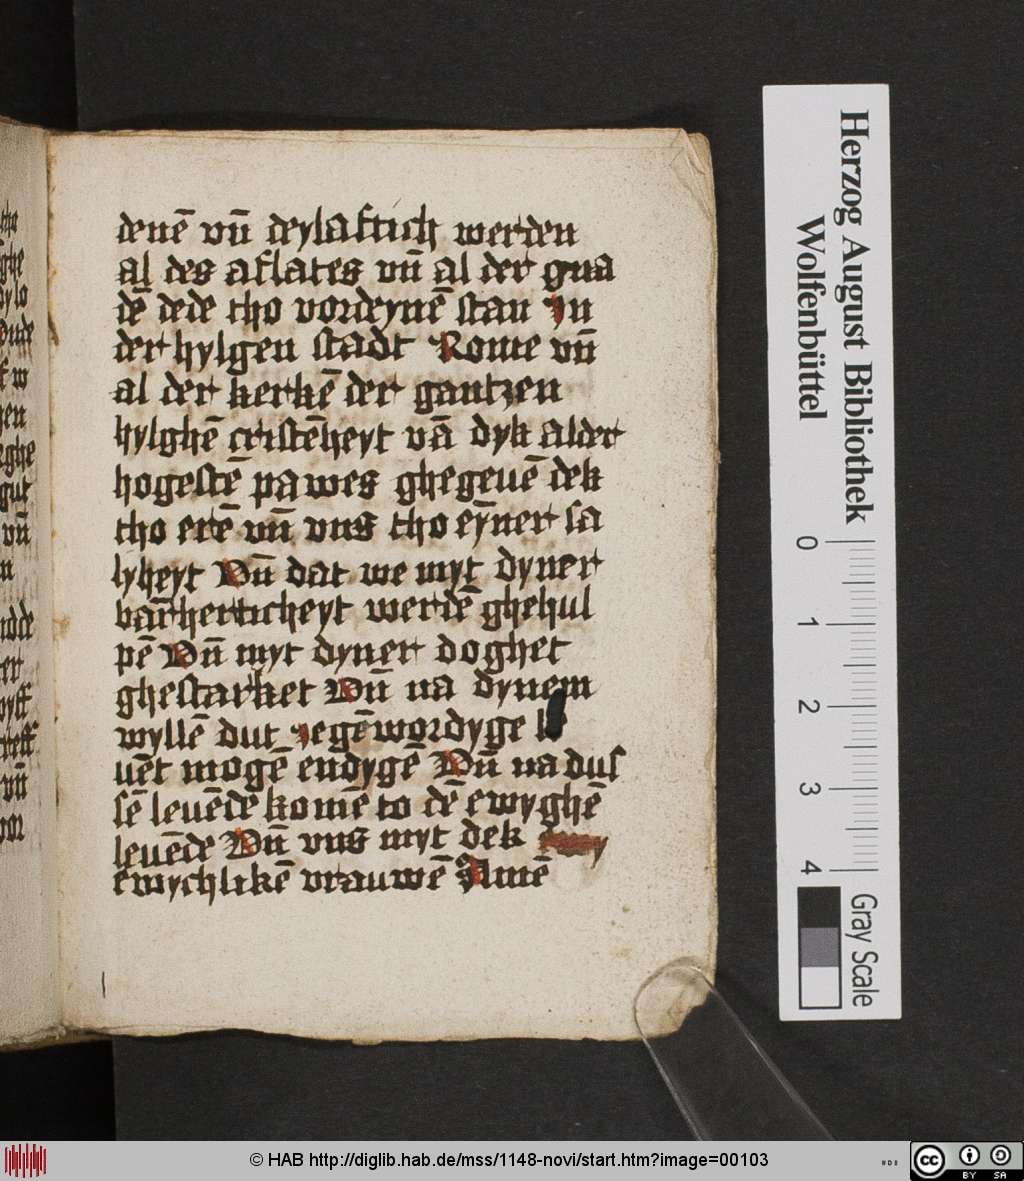 denē vn̄ deylaftich werden
al des aflates vn̄ al der gna
dē dede tho vordeynē stan In
der hylgen stadt Rome vn̄
al der kerkē der gantzen
hylghē cristēheyt vā dyk alder
hogestē pawes ghegeuē dek
tho erē vn̄ vns tho eyner sa
lyheyt Vn̄ dat we myt dyner
barmherticheyt werdē ghehul
pē Vn̄ myt dyner doghet
ghestarket Vn̄ na dynem
wyllē dut jegēwordyge le
uēt mogē endygē Vn̄ na dus
sē leuēde komē to dē ewyghē
leuēde Vn̄ vns myt dek
ewychlikē vrauwē Amē
Herzog August Bibliothek
Wolfenbüttel
0 1 2 3 4
Gray Scale
© HAB http://diglib.hab.de/mss/1148-novi/start.htm?image=00103
cc BY SA